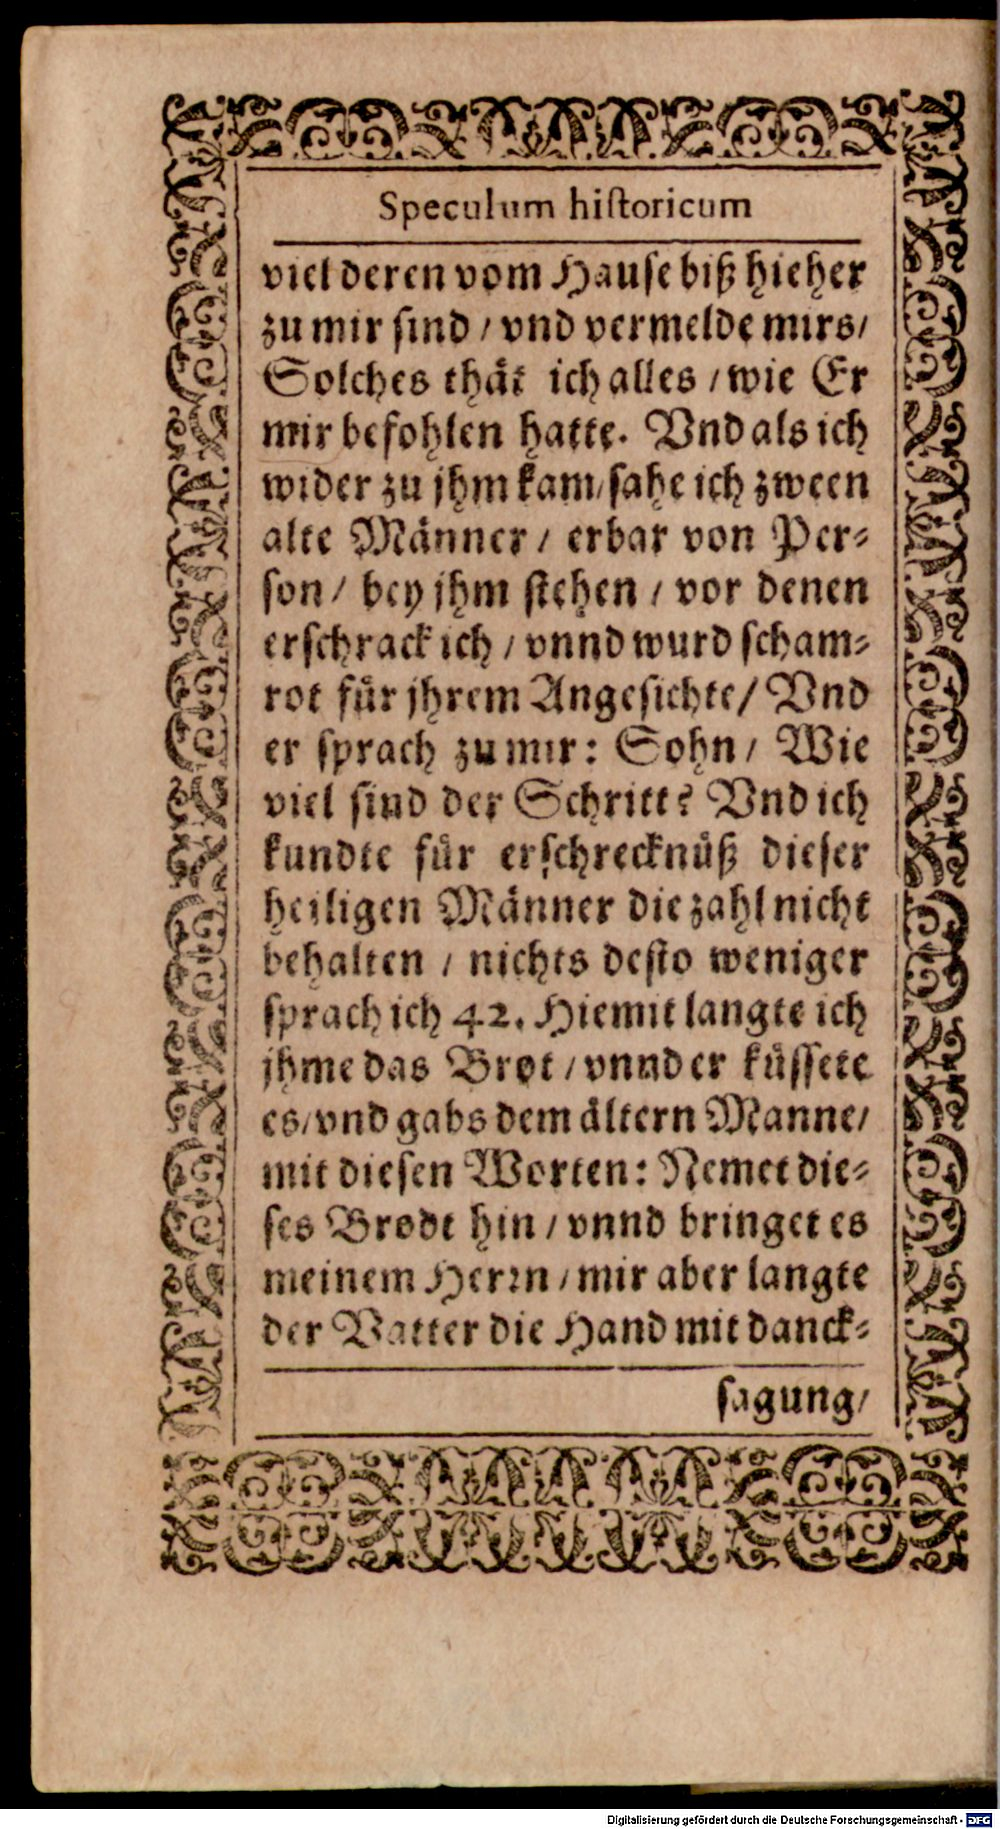 Speculum hiſtoricum
viel deren vom Hauſe biß hieher
zu mir ſind / vnd vermelde mirs/
Solches thät ich alles / wie Er
mir befohlen hatte. Vnd als ich
wider zu jhm kam/ſahe ich zween
alte Männer / erbar von Per⸗
ſon / bey jhm ſtehen / vor denen
erſchrack ich / vnnd wurd ſcham⸗
rot für jhrem Angeſichte / Vnd
er ſprach zu mir: Sohn / Wie
viel ſind der Schritt? Vnd ich
kundte für erſchrecknüß dieſer
heiligen Männer die zahl nicht
behalten / nichts deſto weniger
ſprach ich 42. Hiemit langte ich
jhme das Brot / vnnd er küſſete
es/vnd gabs dem ältern Manne/
mit dieſen Worten: Nemet die⸗
ſes Brodt hin / vnnd bringet es
meinem Herrn / mir aber langte
der Vatter die Hand mit danck⸗
ſagung/
Digitalisierung gefördert durch die Deutsche Forschungsgemeinschaft - DFG